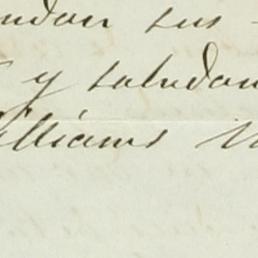 ndan sus
y saludan
illiams